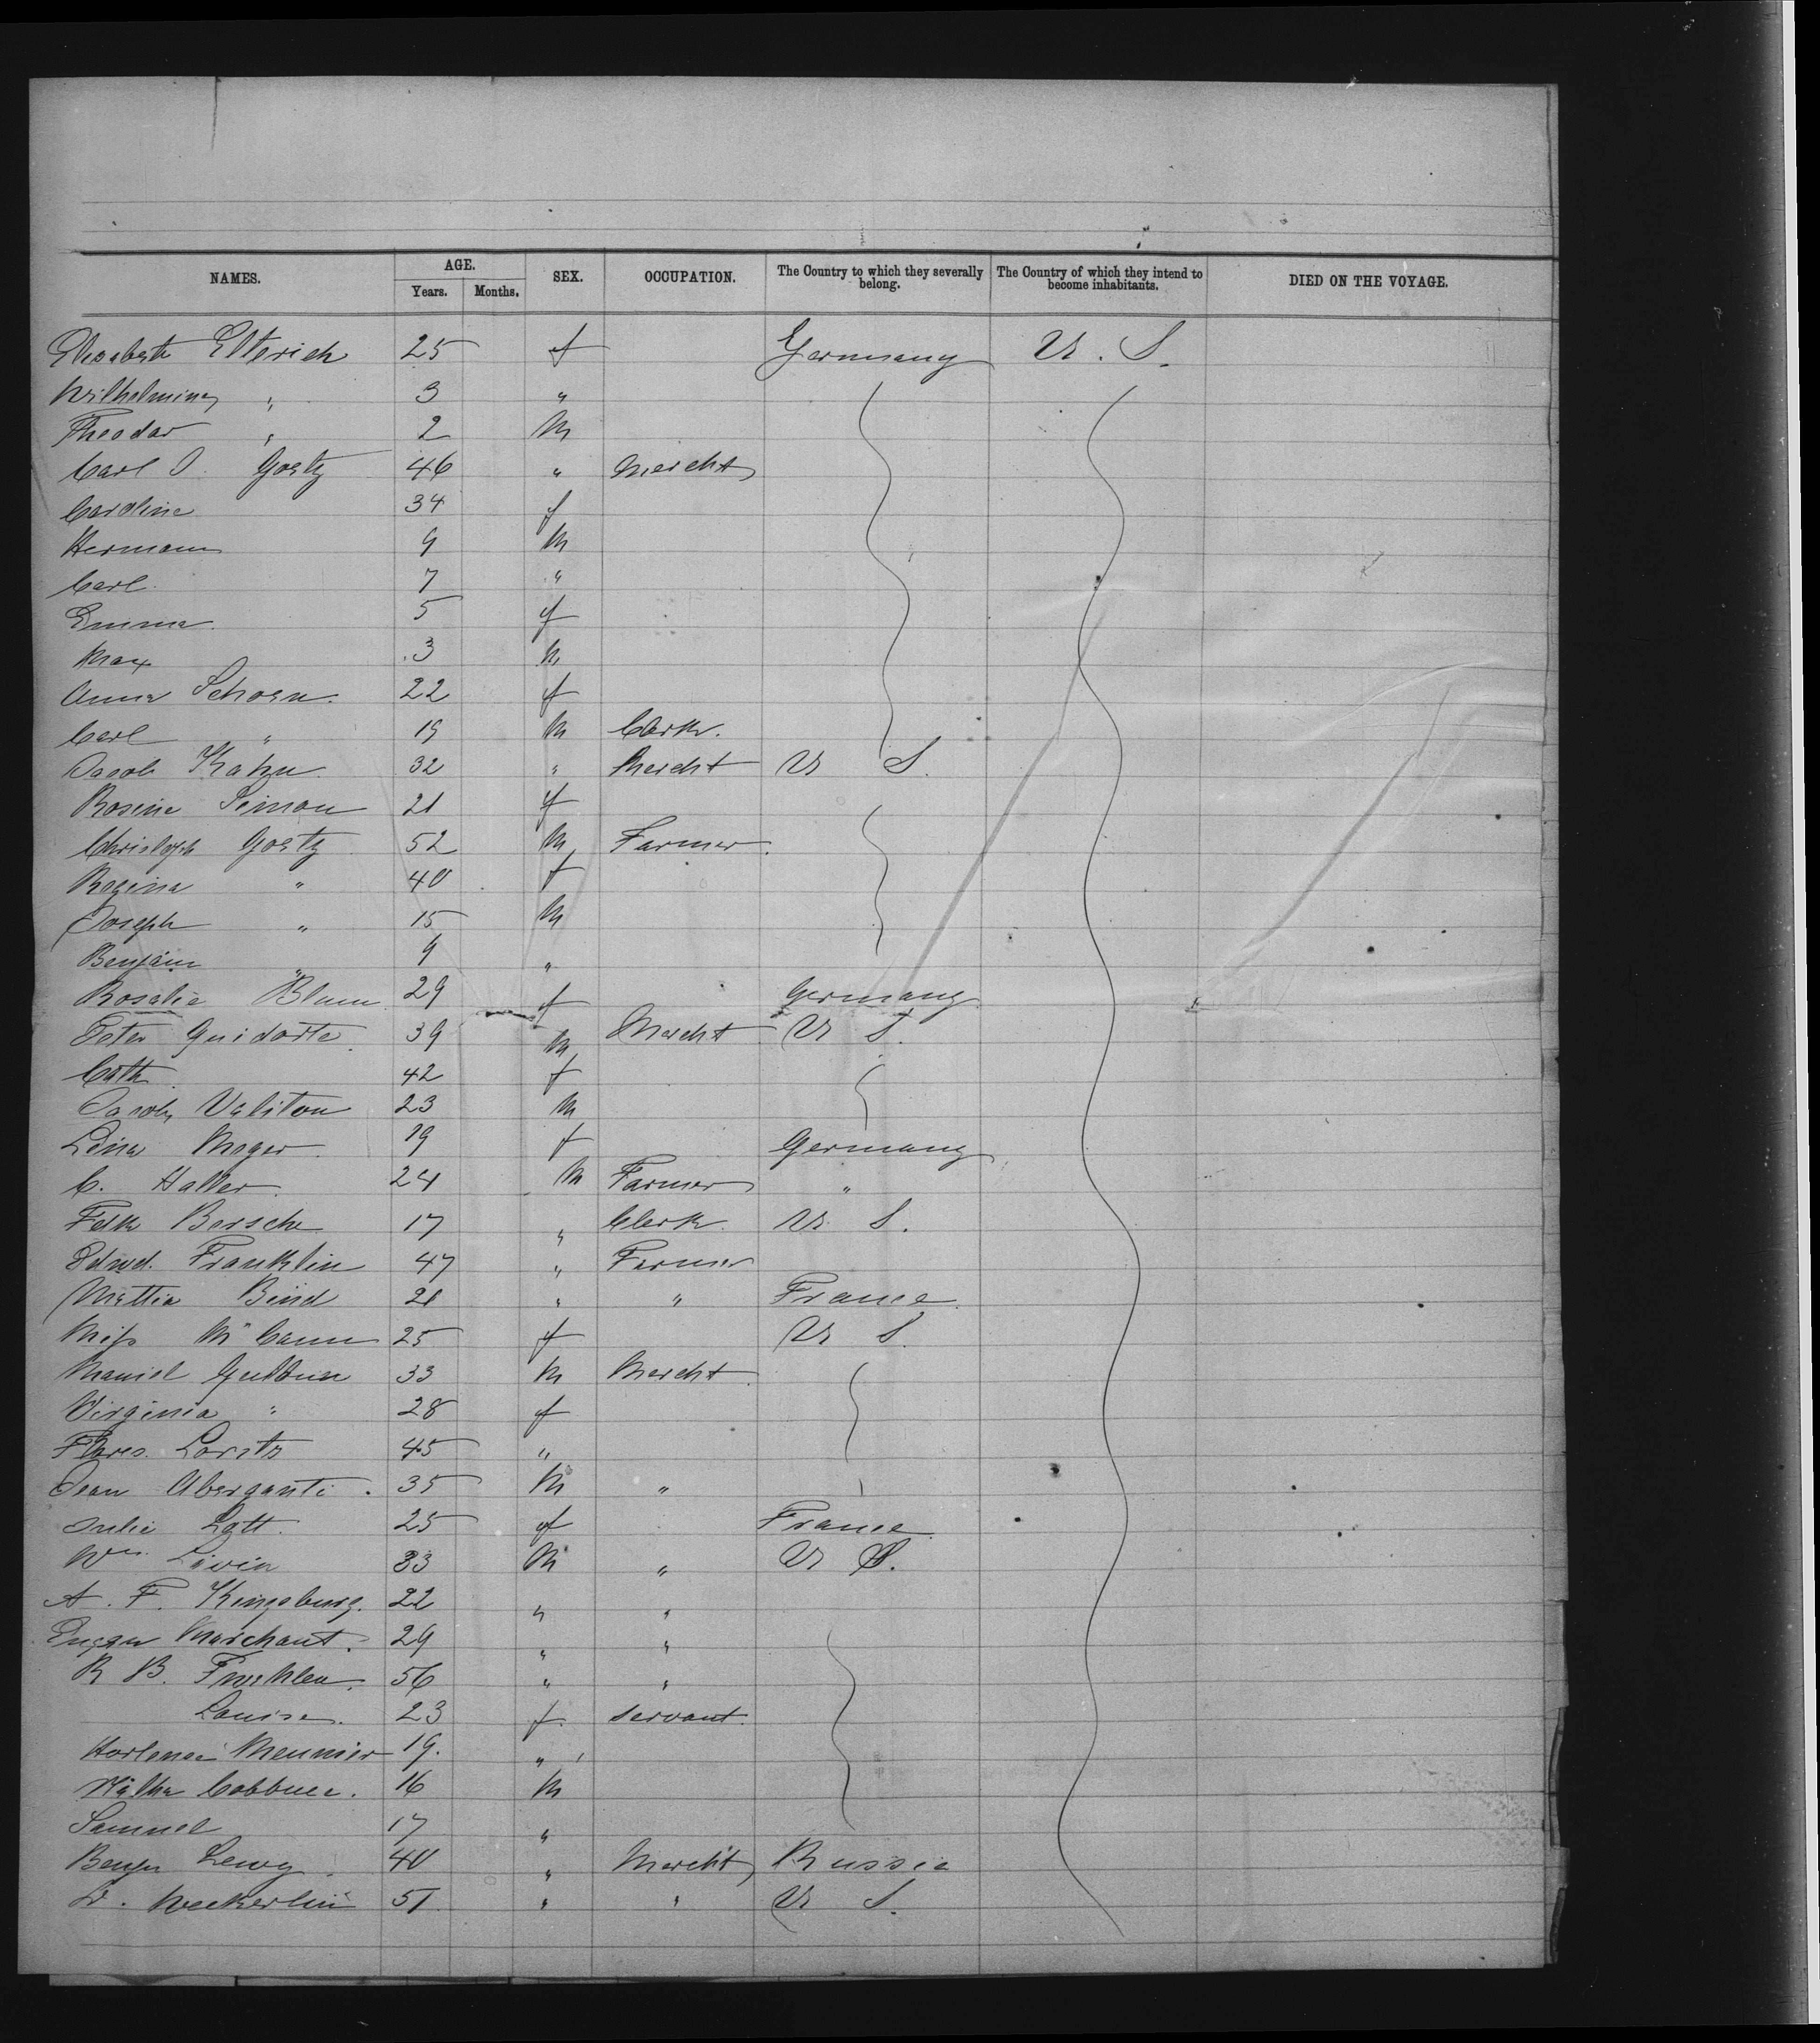 NAMES. AGE. SEX. OCCUPATION. The Country to which they severally belong. The Country of which they intend to become inhabitants. DIED ON THE VOYAGE.
Years. Months.
Elisabeth Elterich 25 f Germany U. S.
Wilhelmina " 3 "
Theodor " 2 M
Carl J. Goetz 46 " Mercht
Caroline 34 f
Hermann 9 M
Carl 7 "
Emma 5 f
Max 3 M
Anna Schoen. 22 f
Carl " 19 M Clerk.
Jacob Kahn 32 " Mercht U S.
Rosine Simon 21 f
Christoph Goetz 52 M Farmer
Regina " 40 f
Joseph " 15 M
Benjam " 9 "
Rosalie Blum 29 f Germany
Peter Guidotte 39 M Mercht U S.
Cath 42 f
Jacob Valiton 23 M
Lina Mayer 19 f Germany
C. Haller 24 M Farmer "
Felix Bersch 17 " Clerk U. S.
Edwd. Franklin 47 " Farmer
Mattia Bind 21 " " France
Miss McCann 25 f U S
Manuel 33 M Mercht
Virginia " 28 f
45 "
Jean Aberganti. 35 M "
Julie Lott. 25 f France
Wm. Livin 33 M " U S.
A. F. Kingsbury. 22 " "
Eugen Marchant. 29 " "
R B. 56 " "
Louise. 23 f. servant
Hortense Meunier 19. "
16 M
Samuel 17 "
Benjn Lewy 40 " Mercht Russia
D. Weckerlin 51 " " U S.